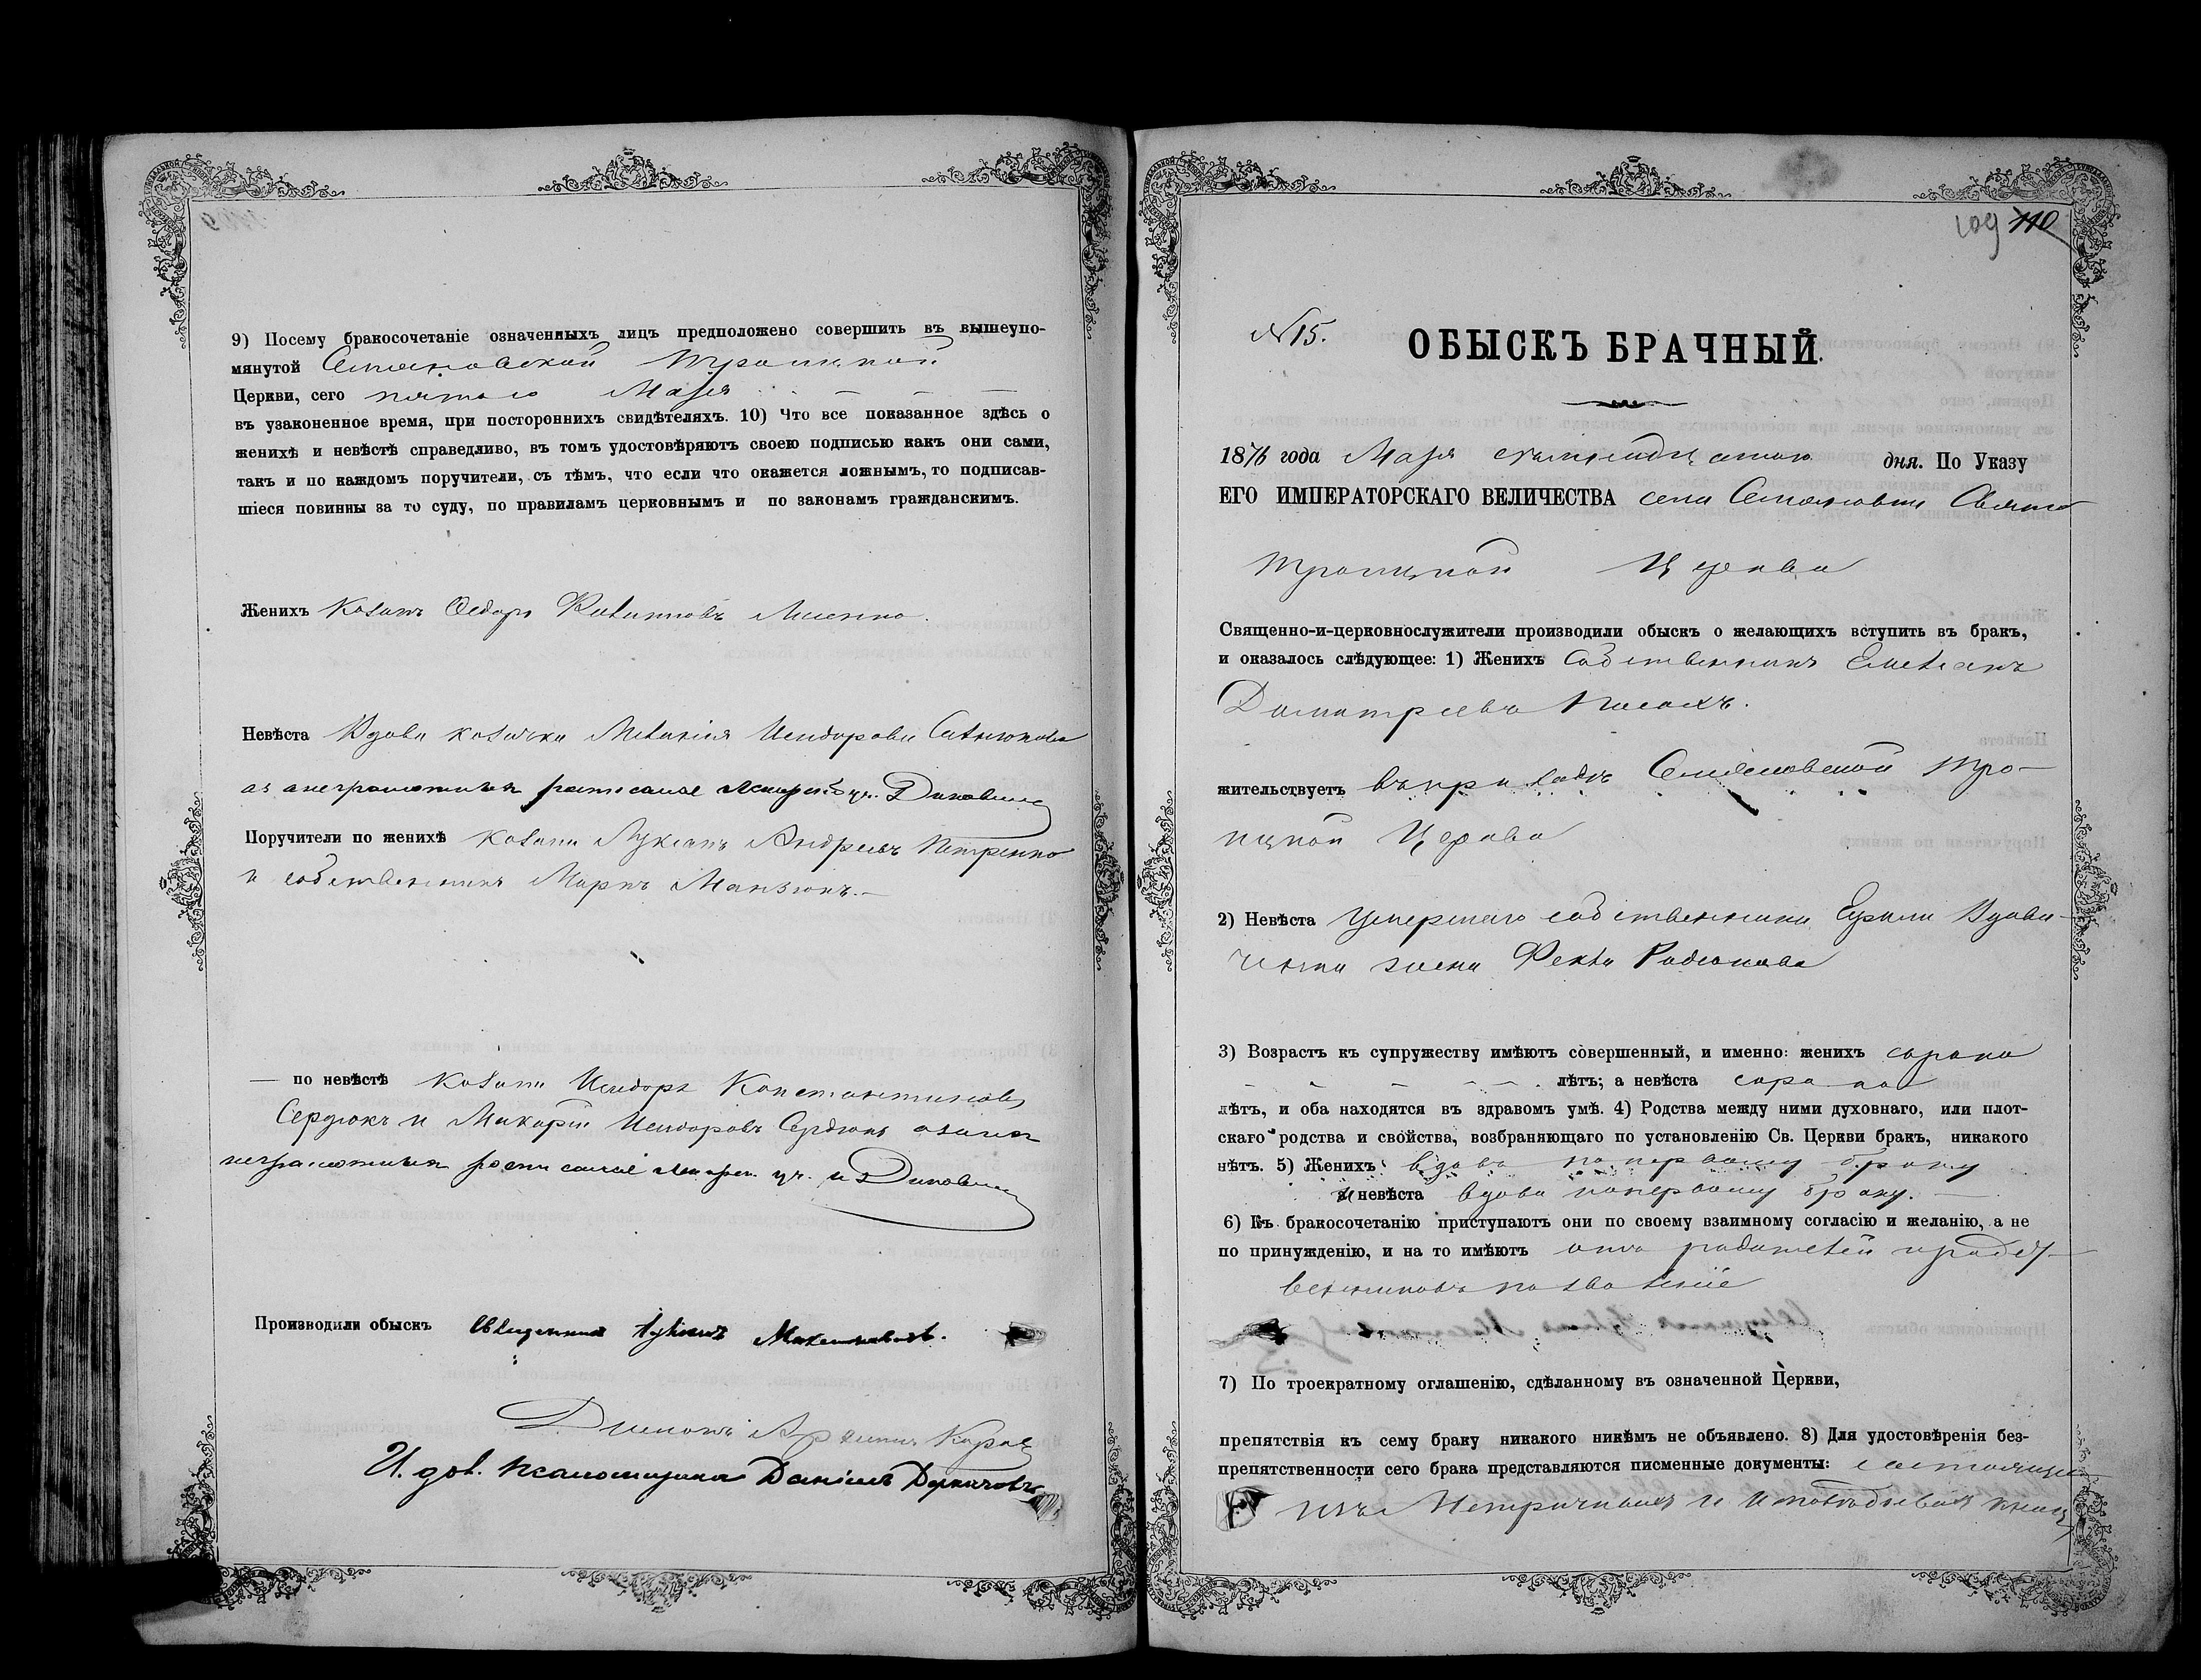 9) Посему бракосочетаніе означенныхъ лицъ предположено совершить въ вышеупо-
мянутой Степановской Троицкой
Церкви, сего пятаго Мая
въ узаконенное время, при постороннихъ свидѣтеляхъ. 10) Что все показанное здѣсь о
женихѣ и невѣстѣ справедливо, въ томъ удостовѣряютъ своею подписью какъ они сами,
такъ и по каждомъ поручители, съ тѣмъ, что если что окажется ложнымъ, то подписав-
шіеся повинны за то суду, по правиламъ церковнымъ и по законамъ гражданскимъ.
Женихъ Козакъ Ѳедоръ
Невѣста Вдова козачка Меланія Исидорова
а за неграмотныхъ росписался
Поручители по женихѣ козаки Лукіанъ Андреевъ Петренко
и собственникъ Маркъ Манзюкъ.—
— по невѣстѣ козаки Исидоръ Константиновъ
Сердюкъ и Макарій Исидоровъ Сердюкъ а за нихъ
неграмотныхъ росписался
Производили обыскъ Священникъ Максимовичъ.
Дьяконъ
И. дол. псаломщика Даніилъ
109 110
N 15.
ОБЫСКЪ БРАЧНЫЙ.
1876 года Мая семнадцатаго дня. По Указу
ЕГО ИМПЕРАТОРСКАГО ВЕЛИЧЕСТВА села Степановки Свято
Троицкой Церкви
Священно-и-церковнослужители производили обыскъ о желающихъ вступить въ бракъ,
и оказалось слѣдующее: 1) Женихъ Собственникъ Емеліанъ
Димитріевъ
жительствуетъ въ приходѣ Степановской Тро-
ицкой Церкви
2) Невѣста Умершаго собственника
жена Ѳекла Родіонова
3) Возрастъ къ супружеству имѣютъ совершенный, и именно: женихъ сорока
лѣтъ; а невѣста сорока
лѣтъ, и оба находятся въ здравомъ умѣ. 4) Родства между ними духовнаго, или плот-
скаго родства и свойства, возбраняющаго по установленію Св. Церкви бракъ, никакого
нѣтъ. 5) Женихъ вдовъ по первому браку
и невѣста вдова по первому браку. —
6) Къ бракосочетанію приступаютъ они по своему взаимному согласію и желанію, а не
по принужденію, и на то имѣютъ отъ родителей и родст-
венниковъ позволеніе
7) По троекратному оглашенію, сдѣланному въ означенной Церкви,
препятствія къ сему браку никакого никѣмъ не объявлено. 8) Для удостовѣренія без-
препятственности сего брака представляются писменные документы:
изъ Метричныхъ и Исповѣдныхъ книгъ